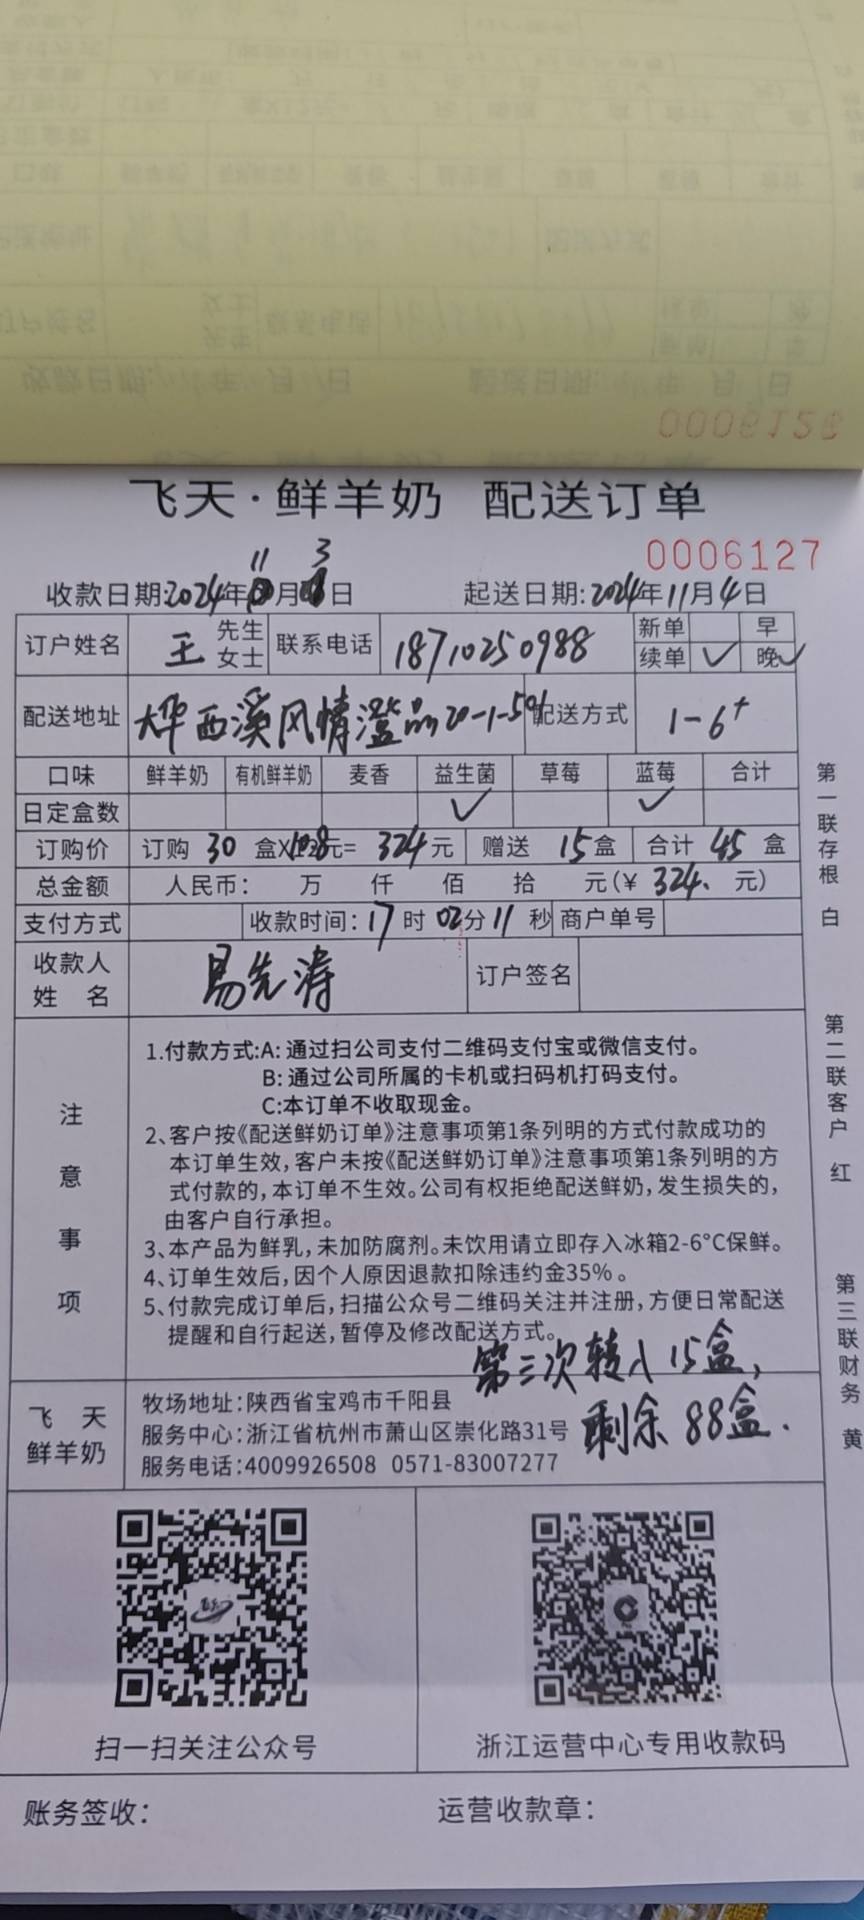 飞天·鲜羊奶 配送订单
0006127
收款日期:2024年11月3日 起送日期:2024年11月4日
订户姓名 王 先生 女士 联系电话 18710250988 新单 早 续单 ✓ 晚 ✓
配送地址 大华西溪风情澄品20-1-501 配送方式 1-6+
口味 鲜羊奶 有机鲜羊奶 麦香 益生菌 草莓 蓝莓 合计
日定盒数 ✓ ✓
订购价 订购 30 盒X10.8元= 324元 赠送 15盒 合计 45 盒
总金额 人民币: 万 仟 佰 拾 元(¥ 324. 元)
支付方式 收款时间:17时02分11秒 商户单号
收款人姓名 易先涛 订户签名
注意事项
1.付款方式:A:通过扫公司支付二维码支付宝或微信支付。
B:通过公司所属的卡机或扫码机打码支付。
C:本订单不收取现金。
2、客户按《配送鲜奶订单》注意事项第1条列明的方式付款成功的
本订单生效,客户未按《配送鲜奶订单》注意事项第1条列明的方
式付款的,本订单不生效。公司有权拒绝配送鲜奶,发生损失的,
由客户自行承担。
3、本产品为鲜乳,未加防腐剂。未饮用请立即存入冰箱2-6°C保鲜。
4、订单生效后,因个人原因退款扣除违约金35%。
5、付款完成订单后,扫描公众号二维码关注并注册,方便日常配送
提醒和自行起送,暂停及修改配送方式。
第三次转入15盒,
剩余88盒.
飞天
鲜羊奶
牧场地址:陕西省宝鸡市千阳县
服务中心:浙江省杭州市萧山区崇化路31号
服务电话:4009926508 0571-83007277
扫一扫关注公众号 浙江运营中心专用收款码
账务签收: 运营收款章:
第一联存根 白
第二联客户 红
第三联财务 黄